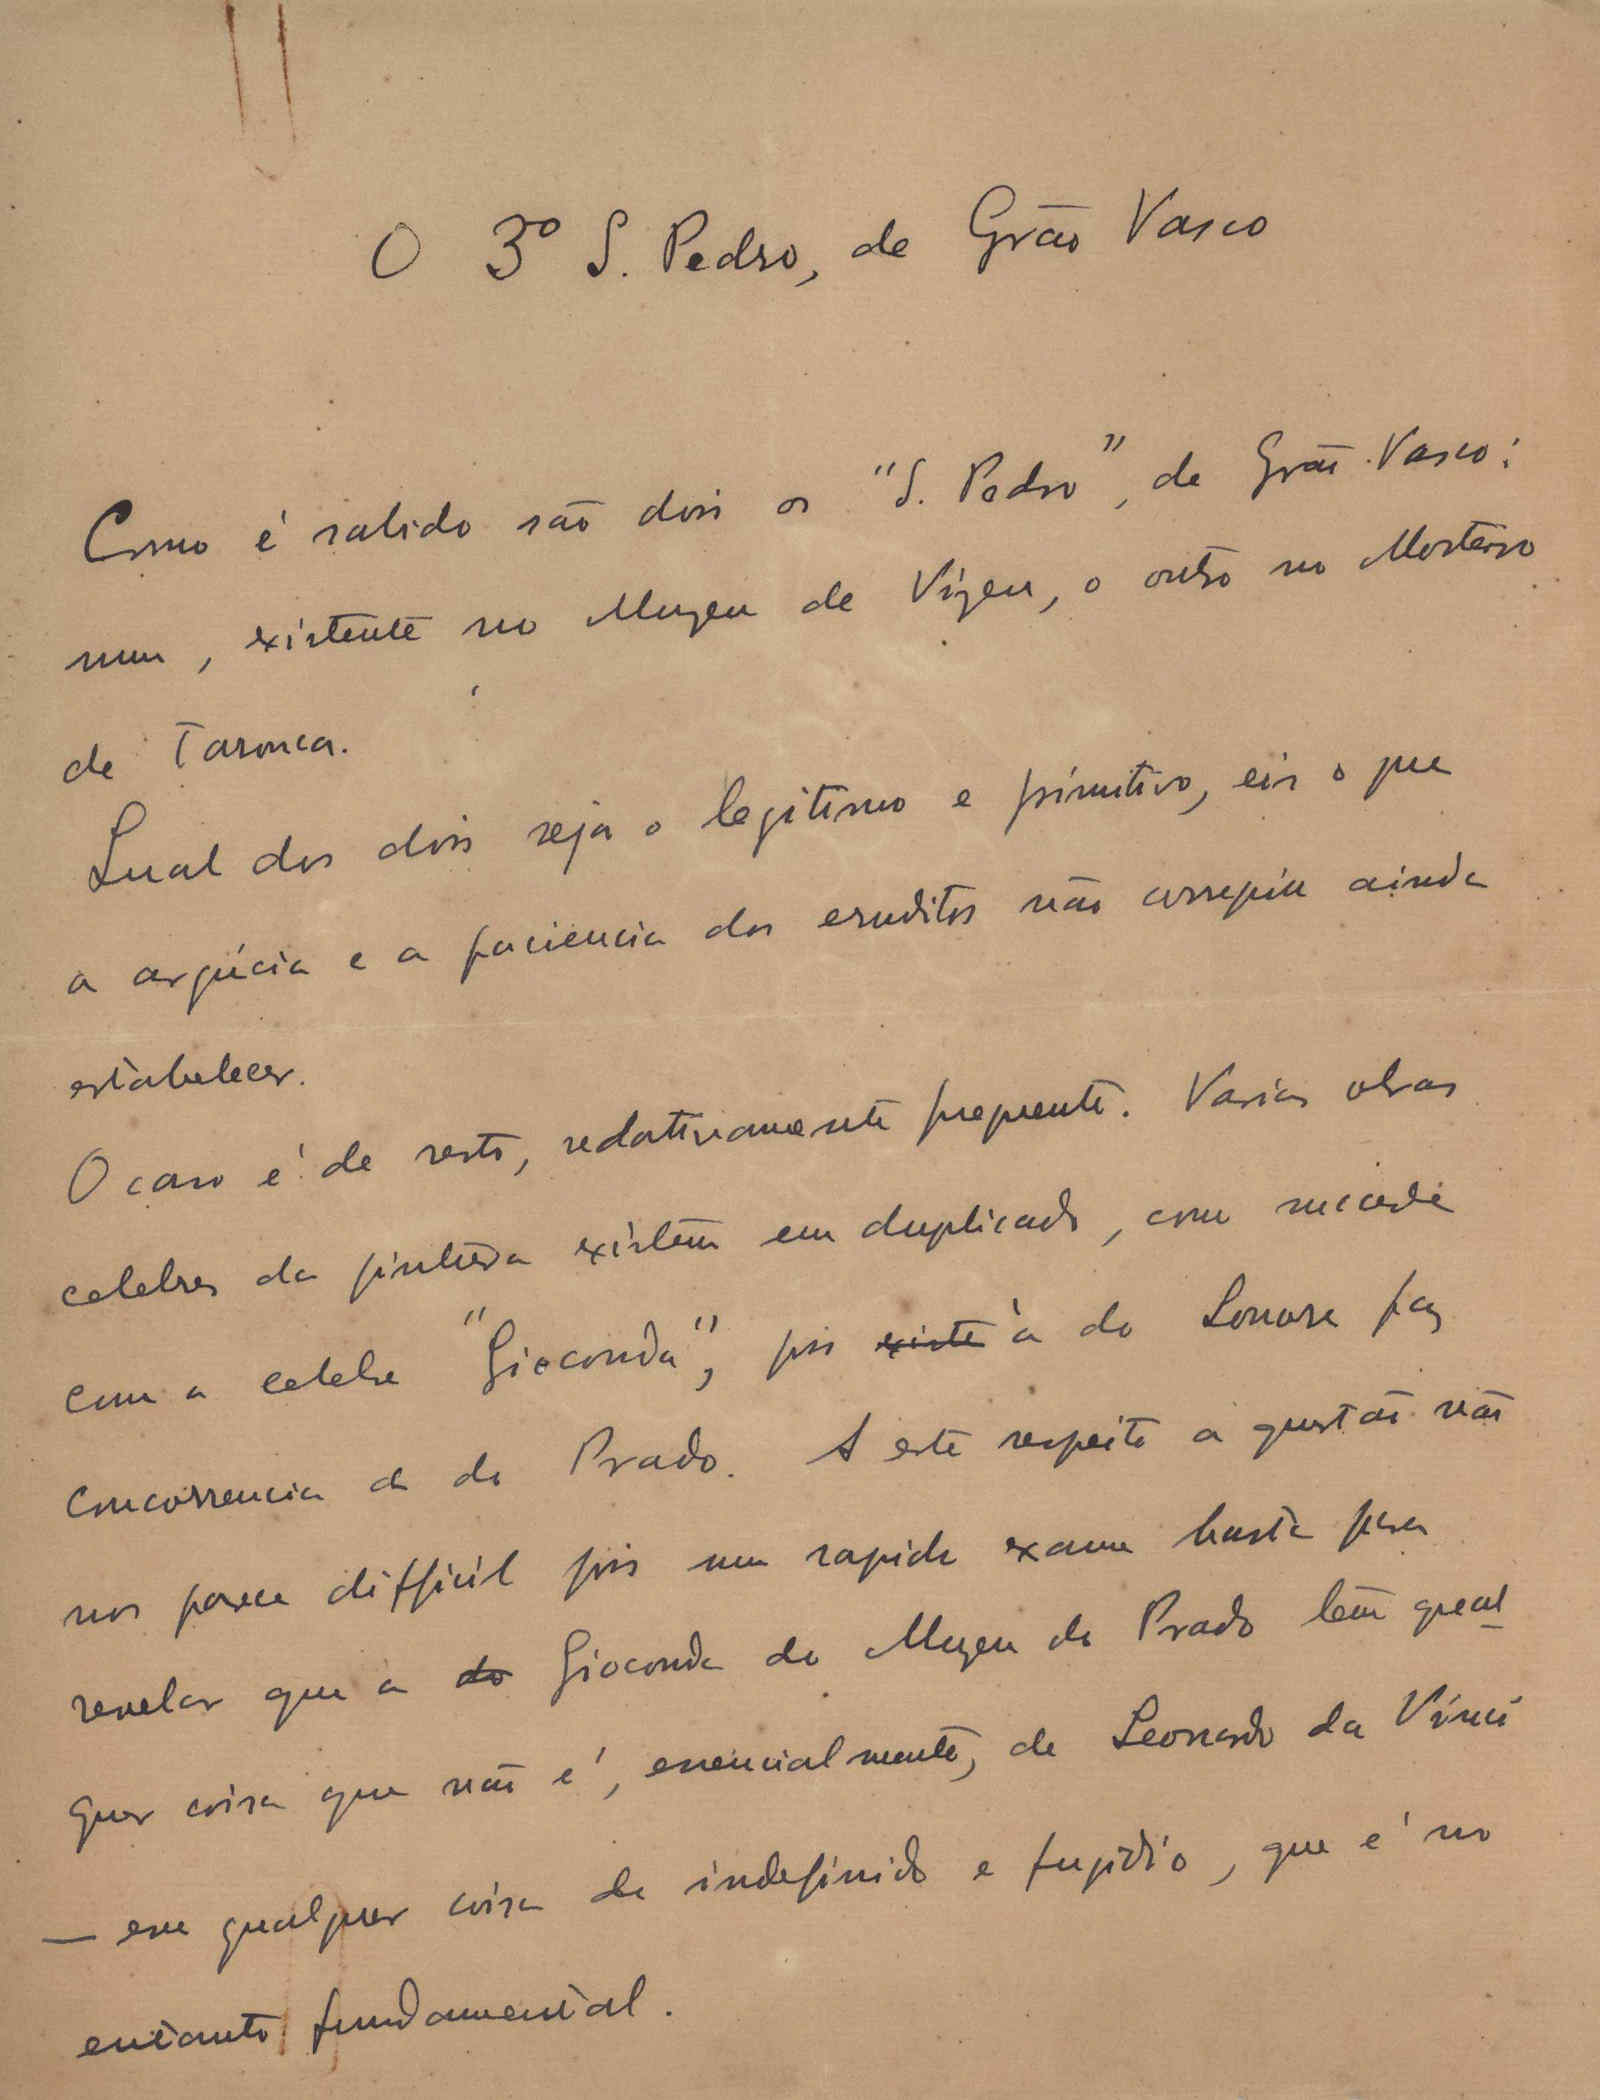 O 3º S. Pedro, de Grão Vasco
Como é sabido são dois os "S. Pedro", de Grão Vasco:
um, existente no Muzeu de Vizeu, o outro no Mosteiro
de Tarouca.
Qual dos dois seja o legitimo e primitivo, eis o que
a argúcia e a paciencia dos eruditos não conseguiu ainda
estabelecer.
O caso é de resto, relativamente frequente. Varias obras
celebres da pintura existem em duplicado, como sucede
com a celebre "Gioconda", pois existe à do Louvre faz
concorrencia a do Prado. A este respeito a questão não
nos parece difficil pois um rapido exame basta para
revelar que a do Gioconda do Muzeu do Prado tem qual-
quer coisa que não é, essencialmente, de Leonardo da Vinci
— esse qualquer coisa de indefinido e fugidio, que é no
entanto fundamental.